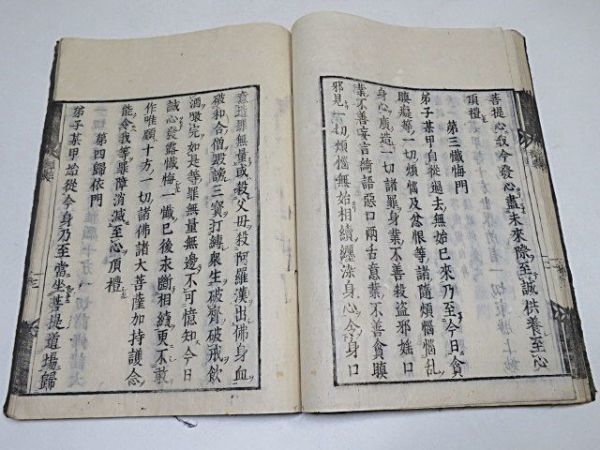 菩提心故今發心盡未來際至誠供養至心
頂禮
第三懺悔門
弟子某甲自從過去無始已來乃至今日貪
瞋癡等一切煩惱及忿恨等諸隨煩惱惱乱
身心廣造一切諸罪身業不善殺盗邪婬口
業不善妄言綺語惡口兩舌意業不善貪瞋
邪見一切煩惱無始相續纏染身心令身口
意造罪無量或殺父母殺阿羅漢出佛身血
破和合僧毀謗三寶打縛衆生破齋破戒飲
酒噉完如是等罪無量無邊不可憶知今日
誠心發露懺悔一懺已後永断相續更不敢
作唯願十方一切諸佛諸大菩薩加持護念
能令我等罪障消滅至心頂禮
第四歸依門
弟子某甲始從今身乃至當坐菩提道場歸